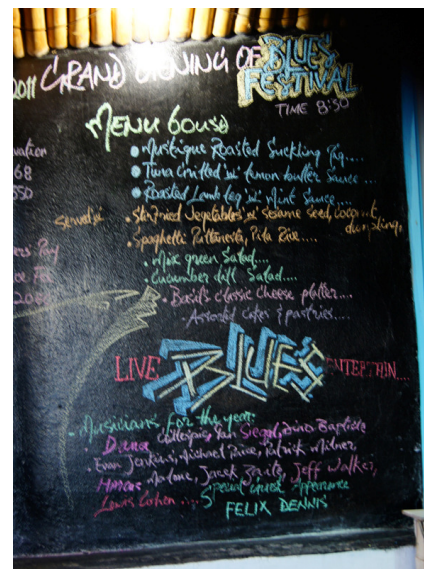 2011 GRAND OPENING OF BLUES FESTIVAL
TIME 8:30
MENU 60USD
Mustique Roasted Suckling Pig....
Tuna Grilled W' Lemon butter Sauce...
Roasted Lamb leg W' Mint Sauce....
Served W' Stir fried Vegetables W' sesame seed, coconut dumpling,
Spaghetti Puttanesta, Pita Rice....
Mix green Salad....
Cucumber dill Salad....
Basil's classic Cheese platter....
Assorted Cakes & pastries....
LIVE BLUES ENTERTAIN....
Musicians for the year:
Dana Gillespie, Ian Siegal, Dino Baptiste
Evan Jenkins, Michael Paice, Patrick Milner,
Malone, Jacek Jeff Walker,
Lewis Cohen .... Special Guest Appearance
FELIX DENNIS